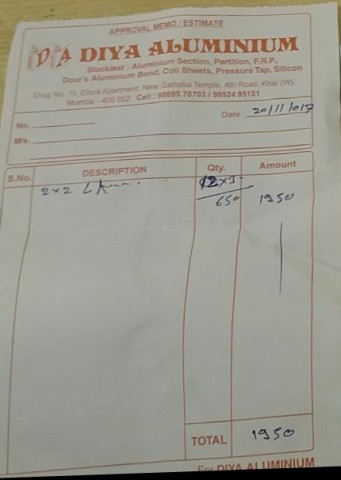 APPROVAL MEMO / ESTIMATE
DIYA ALUMINIUM
Stockiest : Aluminium Section, Partition, F.R.P.,
Door's Aluminium Bond, Coil Sheets, Pressure Tap, Silicon
Shop No. 15, Ellora Apartment, Near Saibaba Temple, 4th Road, Khar (W),
Mumbai - 400 052. Cell : 98695 70703 / 98924 95151
No. Date 20/11/017
M/s.
S.No. DESCRIPTION Qty. Amount
2x2 12x3
650 1950
TOTAL 1950
For DIYA ALUMINIUM